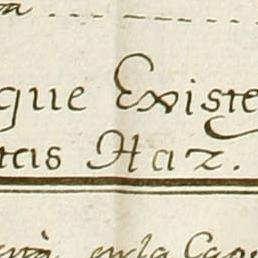 que Existe
tas Haz.
en la Cap